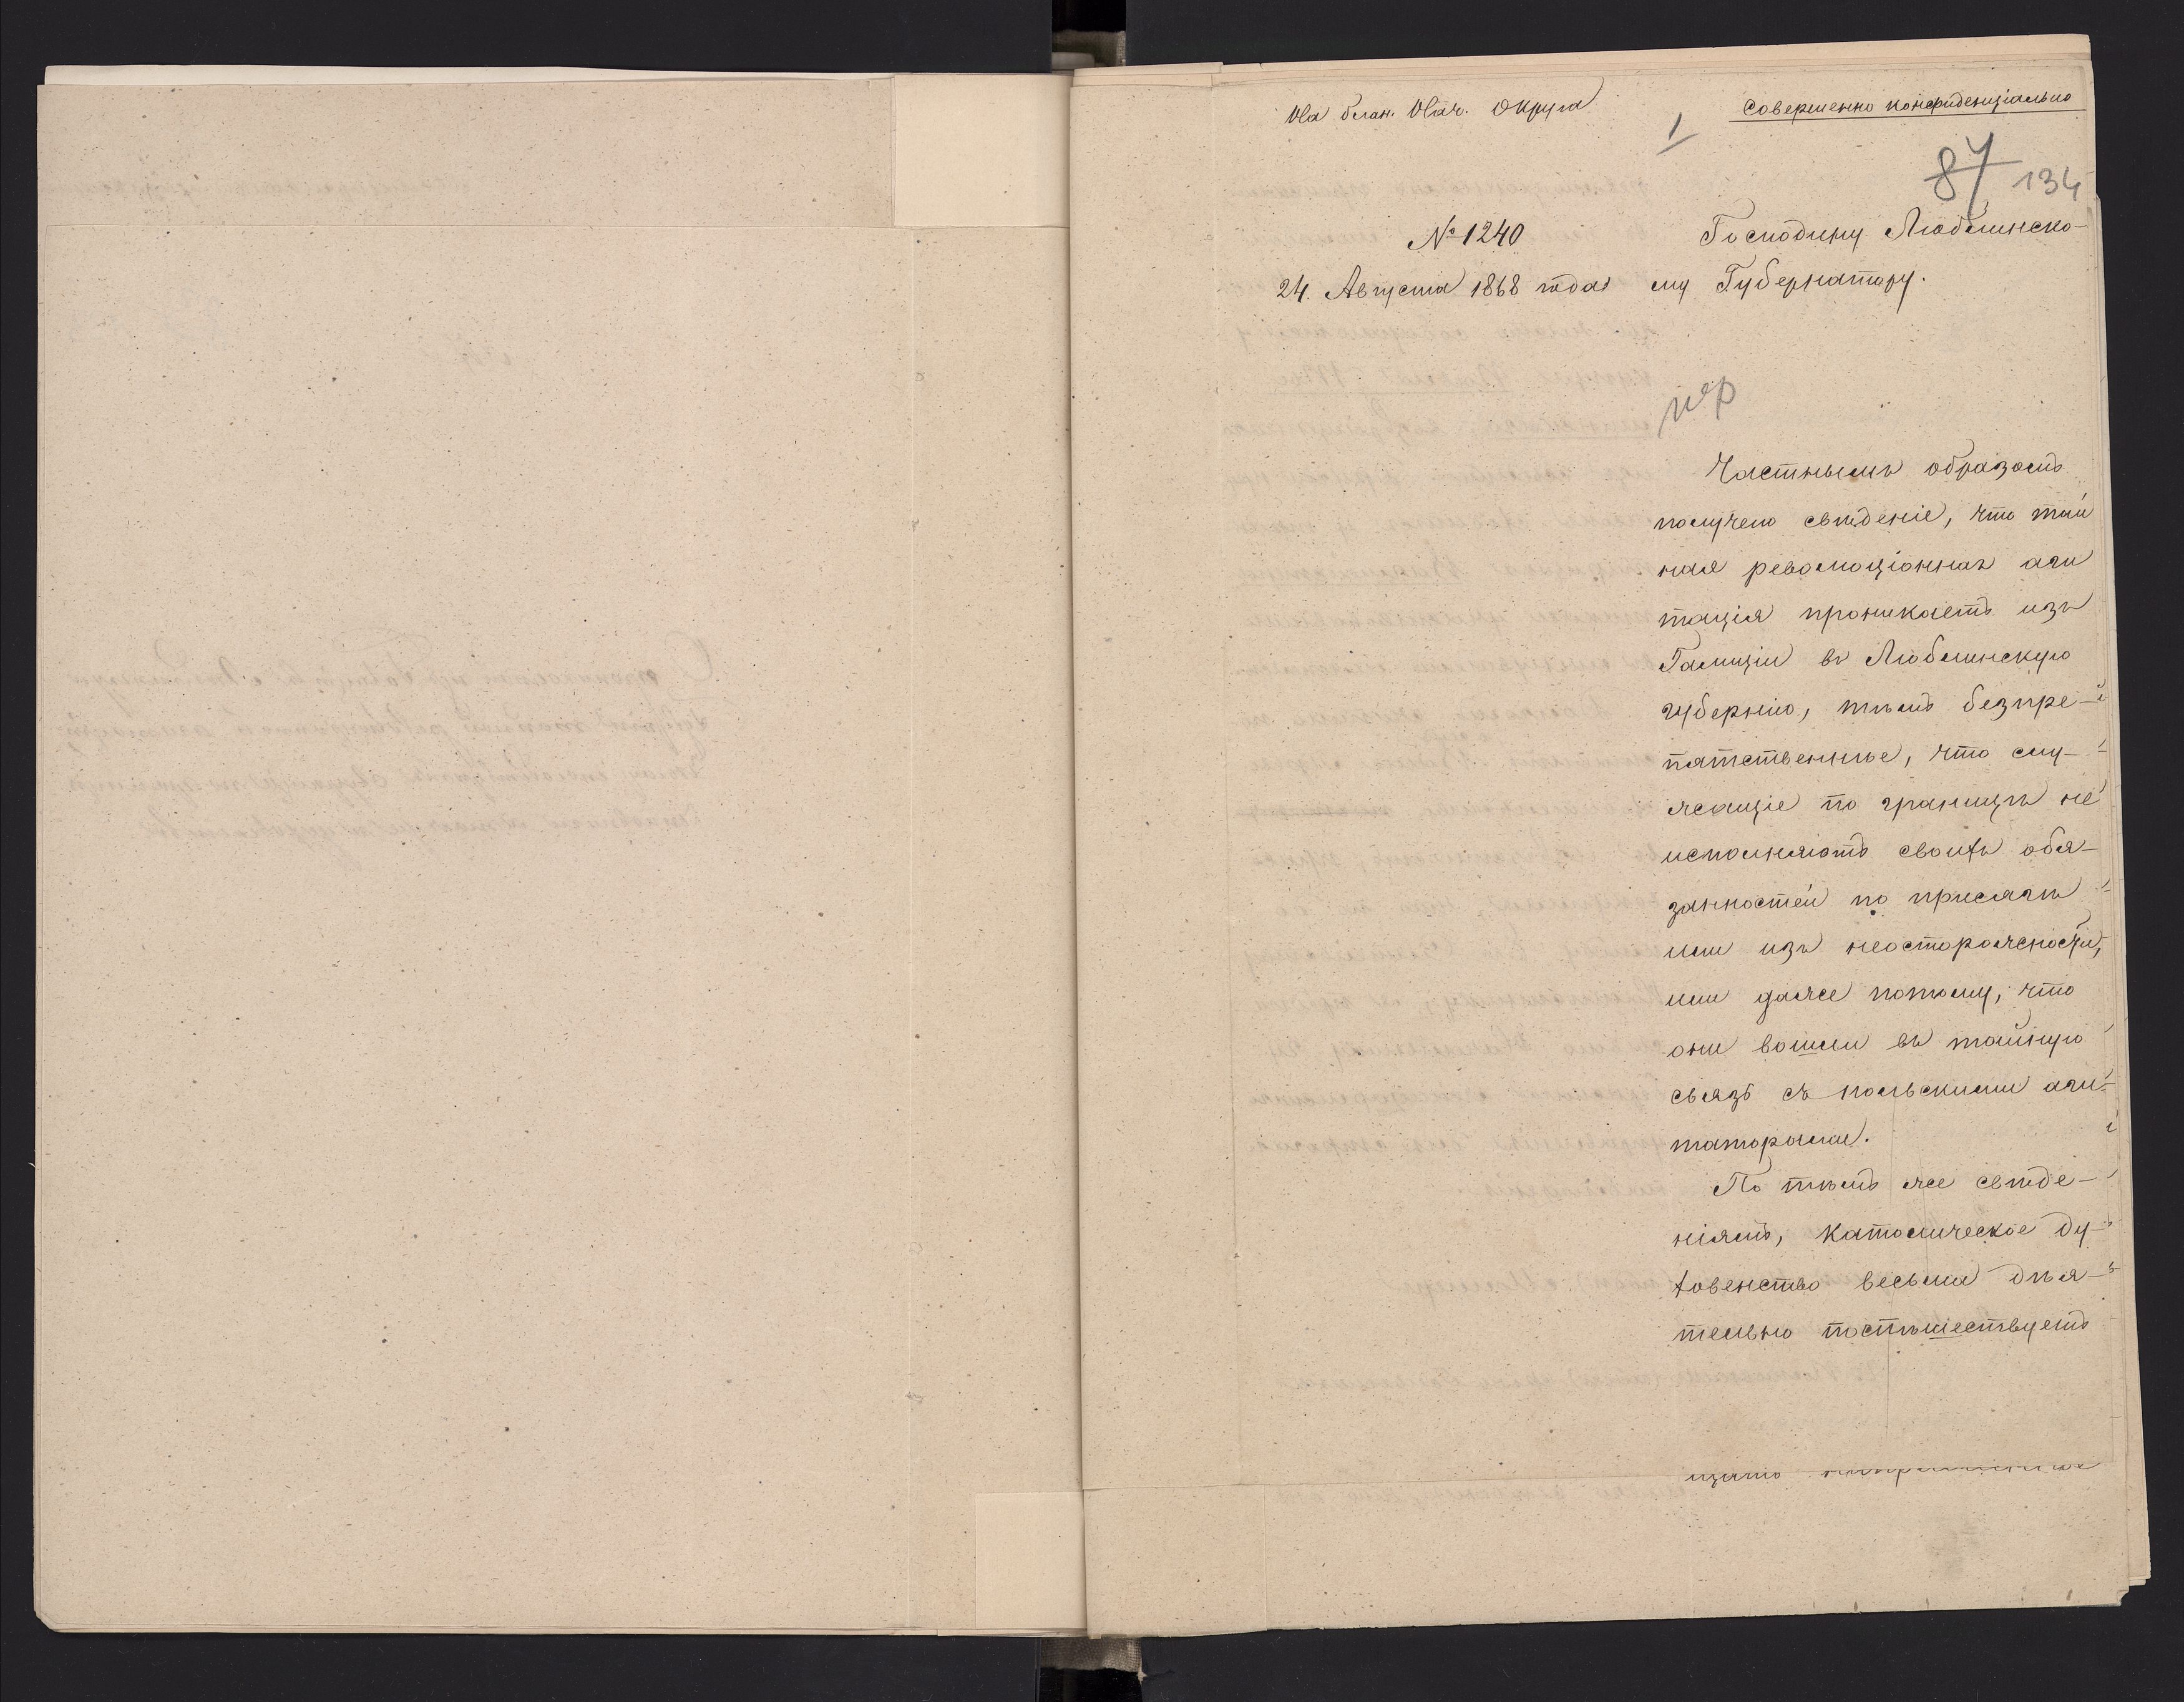 На блан. Нач. Округа
Совершенно конфиденціально
1
87 134
№ 1240
24. Августа 1868 года
Господину Люблинско-
му Губернатору.
Частнымъ образомъ
получено свѣденіе, что тай
ная революціонная аги
тація проникаетъ изъ
Галиціи въ Люблинскую
губернію, тѣмъ безпре-
пятственнѣе, что слу-
жащіе по границѣ не
исполняютъ своихъ обя-
занностей по присягѣ
или изъ неосторожности,
или даже потому, что
они вошли въ тайную
связь съ польскими аги-
таторами.
По тѣмъ же свѣде-
ніямъ, католическое ду-
ховенство весьма дѣя-
тельно поспѣшествуетъ